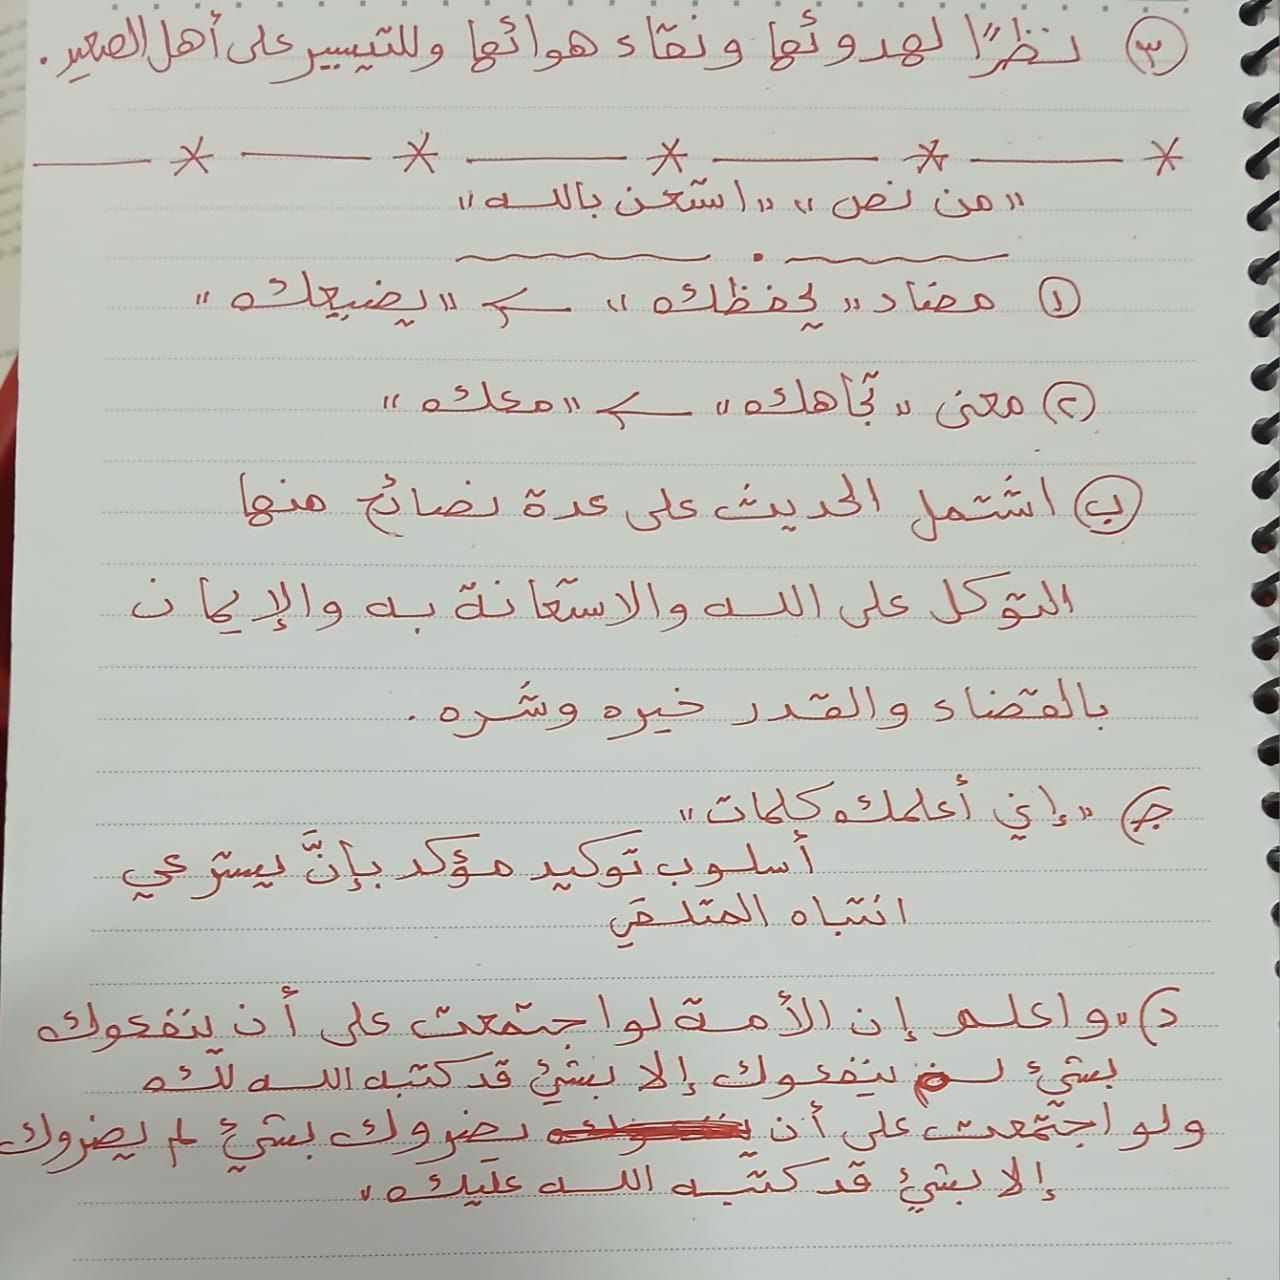 ٣ نظرًا لهدوئها ونقاء هوائها وللتيسير على أهل الصعيد.
"من نص" "استعن بالله"
١ مضاد "يحفظك" ← "يضيعك"
٢ معنى "تجاهك" ← "معك"
ب اشتمل الحديث على عدة نصائح منها
التوكل على الله والاستعانة به والإيمان
بالقضاء والقدر خيره وشره.
جـ "إني أعلمك كلمات"
أسلوب توكيد مؤكد بإنَّ يسترعي
انتباه المتلقي
د) "واعلم إن الأمة لو اجتمعت على أن ينفعوك
بشيء لم ينفعوك إلا بشيء قد كتبه الله لك
ولو اجتمعت على أن يضروك بشيء لم يضروك
إلا بشيء قد كتبه الله عليك"